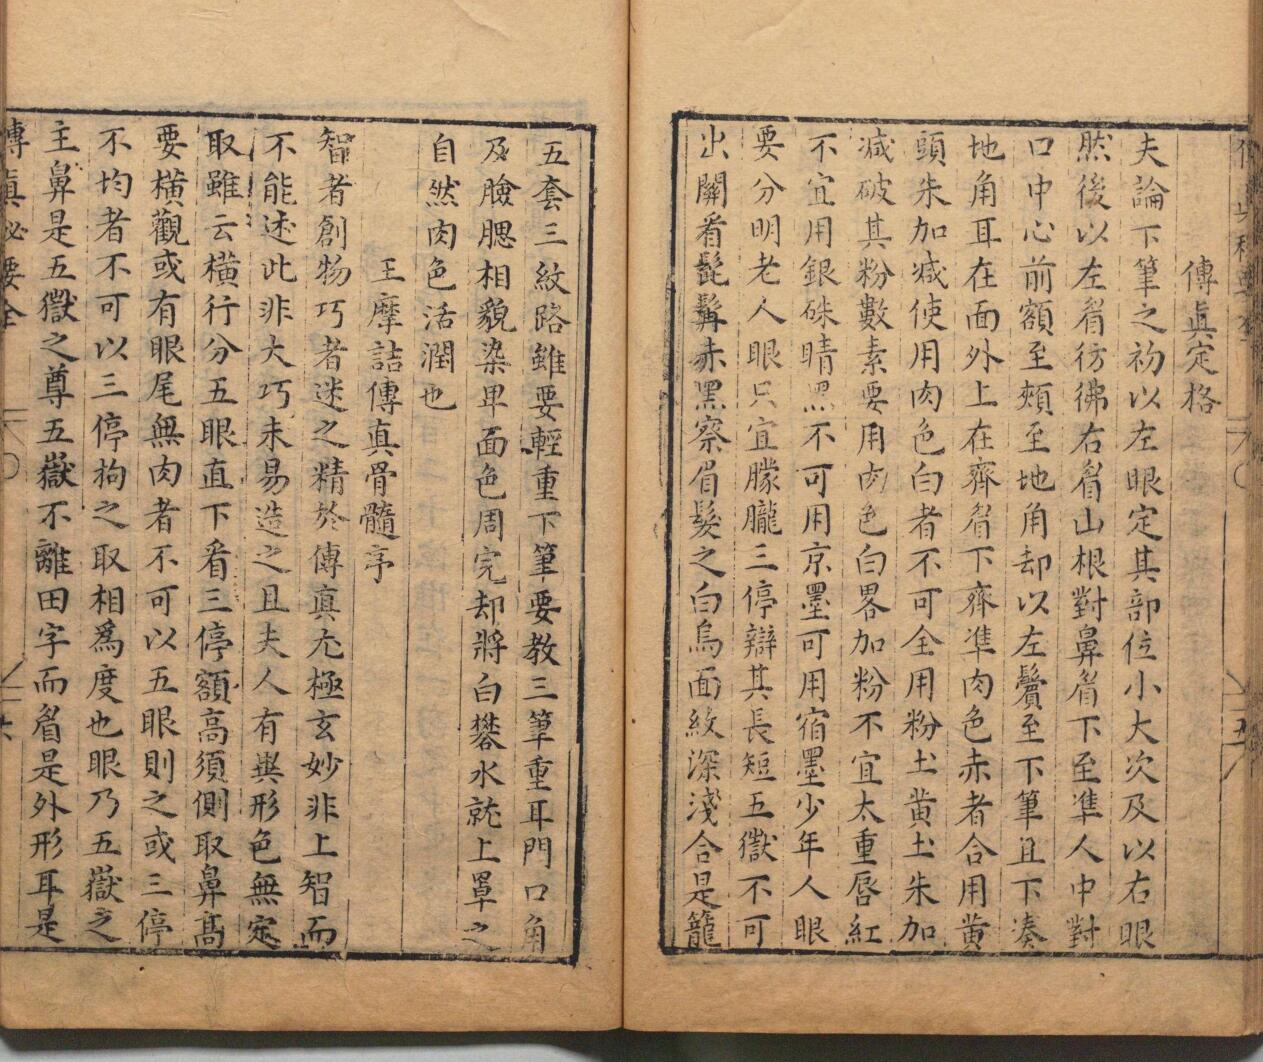 傳眞定格
夫論下筆之初以左眼定其部位小大次及以右眼
然後以左眉彷彿右眉山根對鼻眉下至準人中對
口中心前額至頰至地角却以左鬢至下筆且下湊
地角耳在面外上在齊眉下齊準肉色赤者合用黄
頭朱加减使用肉色白者不可全用粉土黄土朱加
减破其粉數素要用肉色白畧加粉不宜太重唇紅
不宜用銀硃睛黑不可用京墨可用宿墨少年人眼
要分明老人眼只宜朦朧三停辯其長短五嶽不可
出關看髭髯赤黑察眉髮之白烏面紋深淺合是籠
五套三紋路雖要輕重下筆要教三筆重耳門口角
及臉腮相貌染畢面色周完却將白礬水就上罩之
自然肉色活潤也
王摩詰傳真骨髓序
智者創物巧者述之精於傳真尤極玄妙非上智而
不能述此非大巧未易造之且夫人有異形色無定
取雖云橫行分五眼直下看三停額高須側取鼻髙
要橫觀或有眼尾無肉者不可以五眼則之或三停
不均者不可以三停拘之取相爲度也眼乃五嶽之
主鼻是五嶽之尊五嶽不離田字而眉是外形耳是
傳眞祕要全